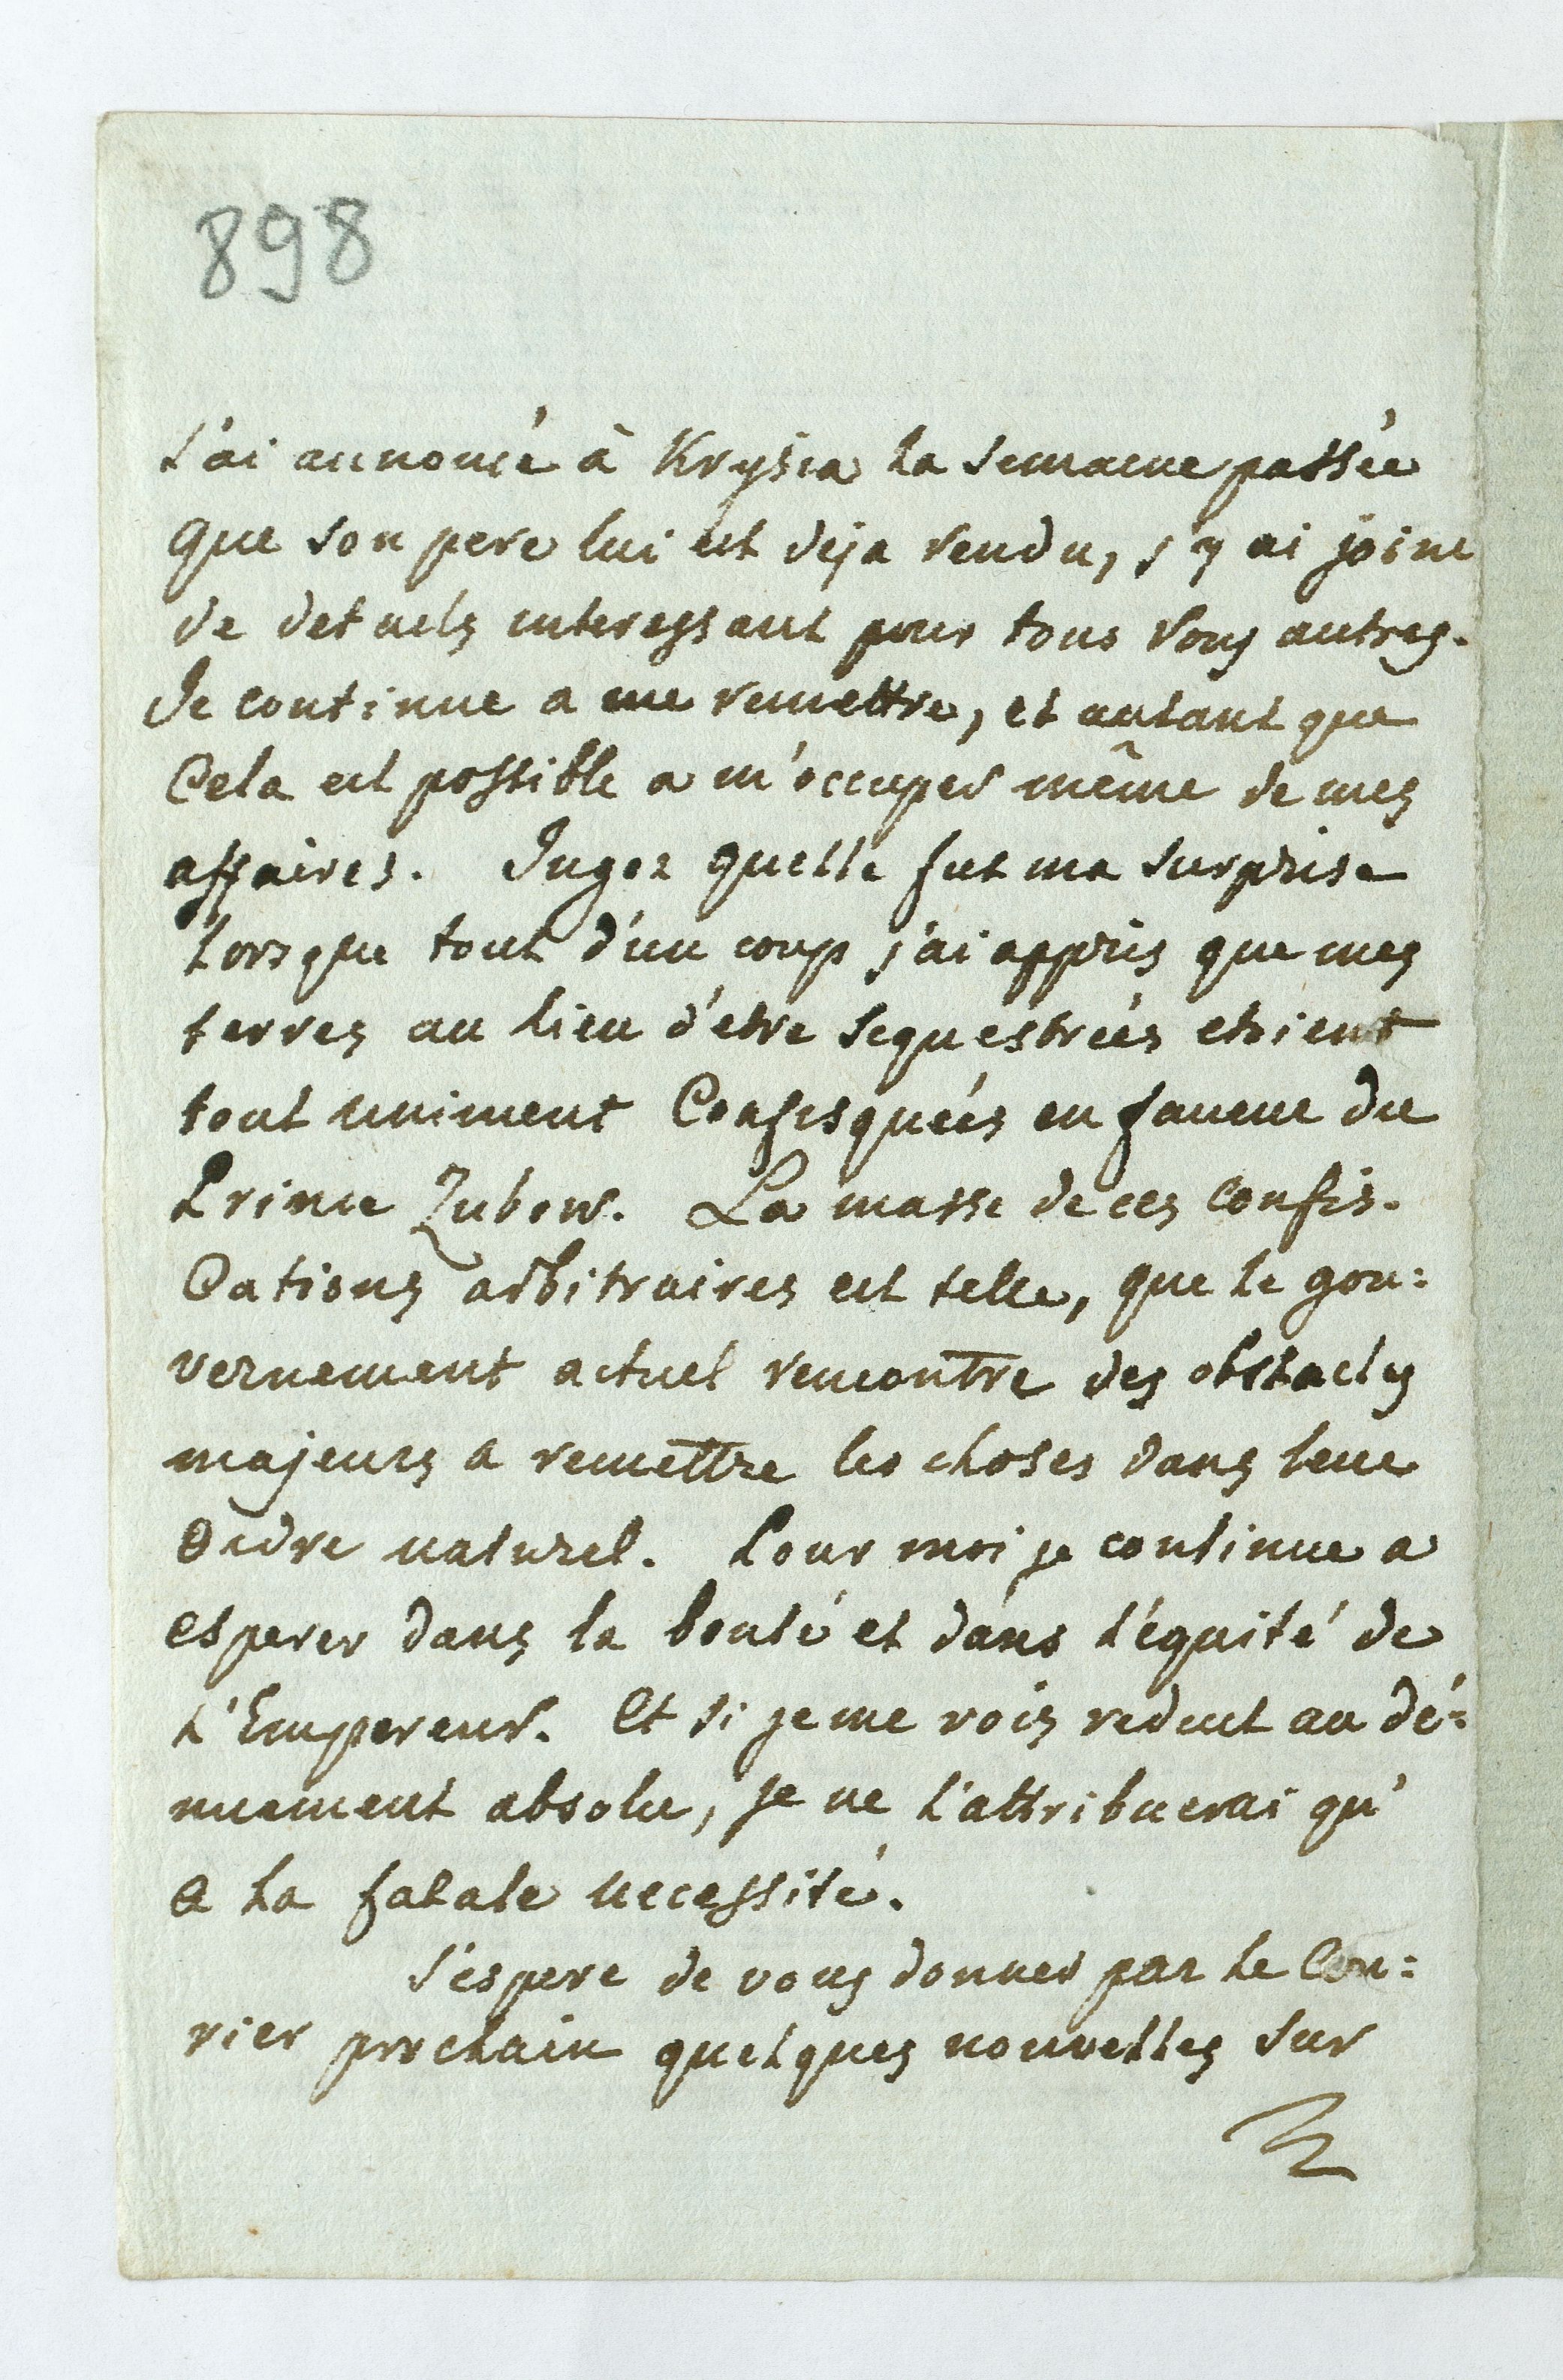 898
J'ai annoncé à Krysia la semaine passée
que son pere lui est deja rendu, j'y ai joint
de detaels interessant pour tous vous autres.
Je continue a me remettre, et autant que
Cela est possible a m'occuper même de mes
affaires. Jugez quelle fut ma surprise
lorsque tout d'un coup j'ai appris que mes
terres au lieu d'etre sequestrées etoient
tout uniment Confisquées en faveur du
Prince Zubow. La masse de ces confis-
Cations arbitraires est telle, que le gou=
vernement actuel rencontre des obstacles
majeurs a remettre les choses dans leur
Ordre naturel. Pour moi je continue a
esperer dans la bonté et dans l'équité de
L'Empereur. Et si je me vois reduit au dé=
nuement absolu, je ne l'attribuerai qu'
a la fatale necessité.
J'espere de vous donner par le Cou=
rier prochain quelques nouvelles sur